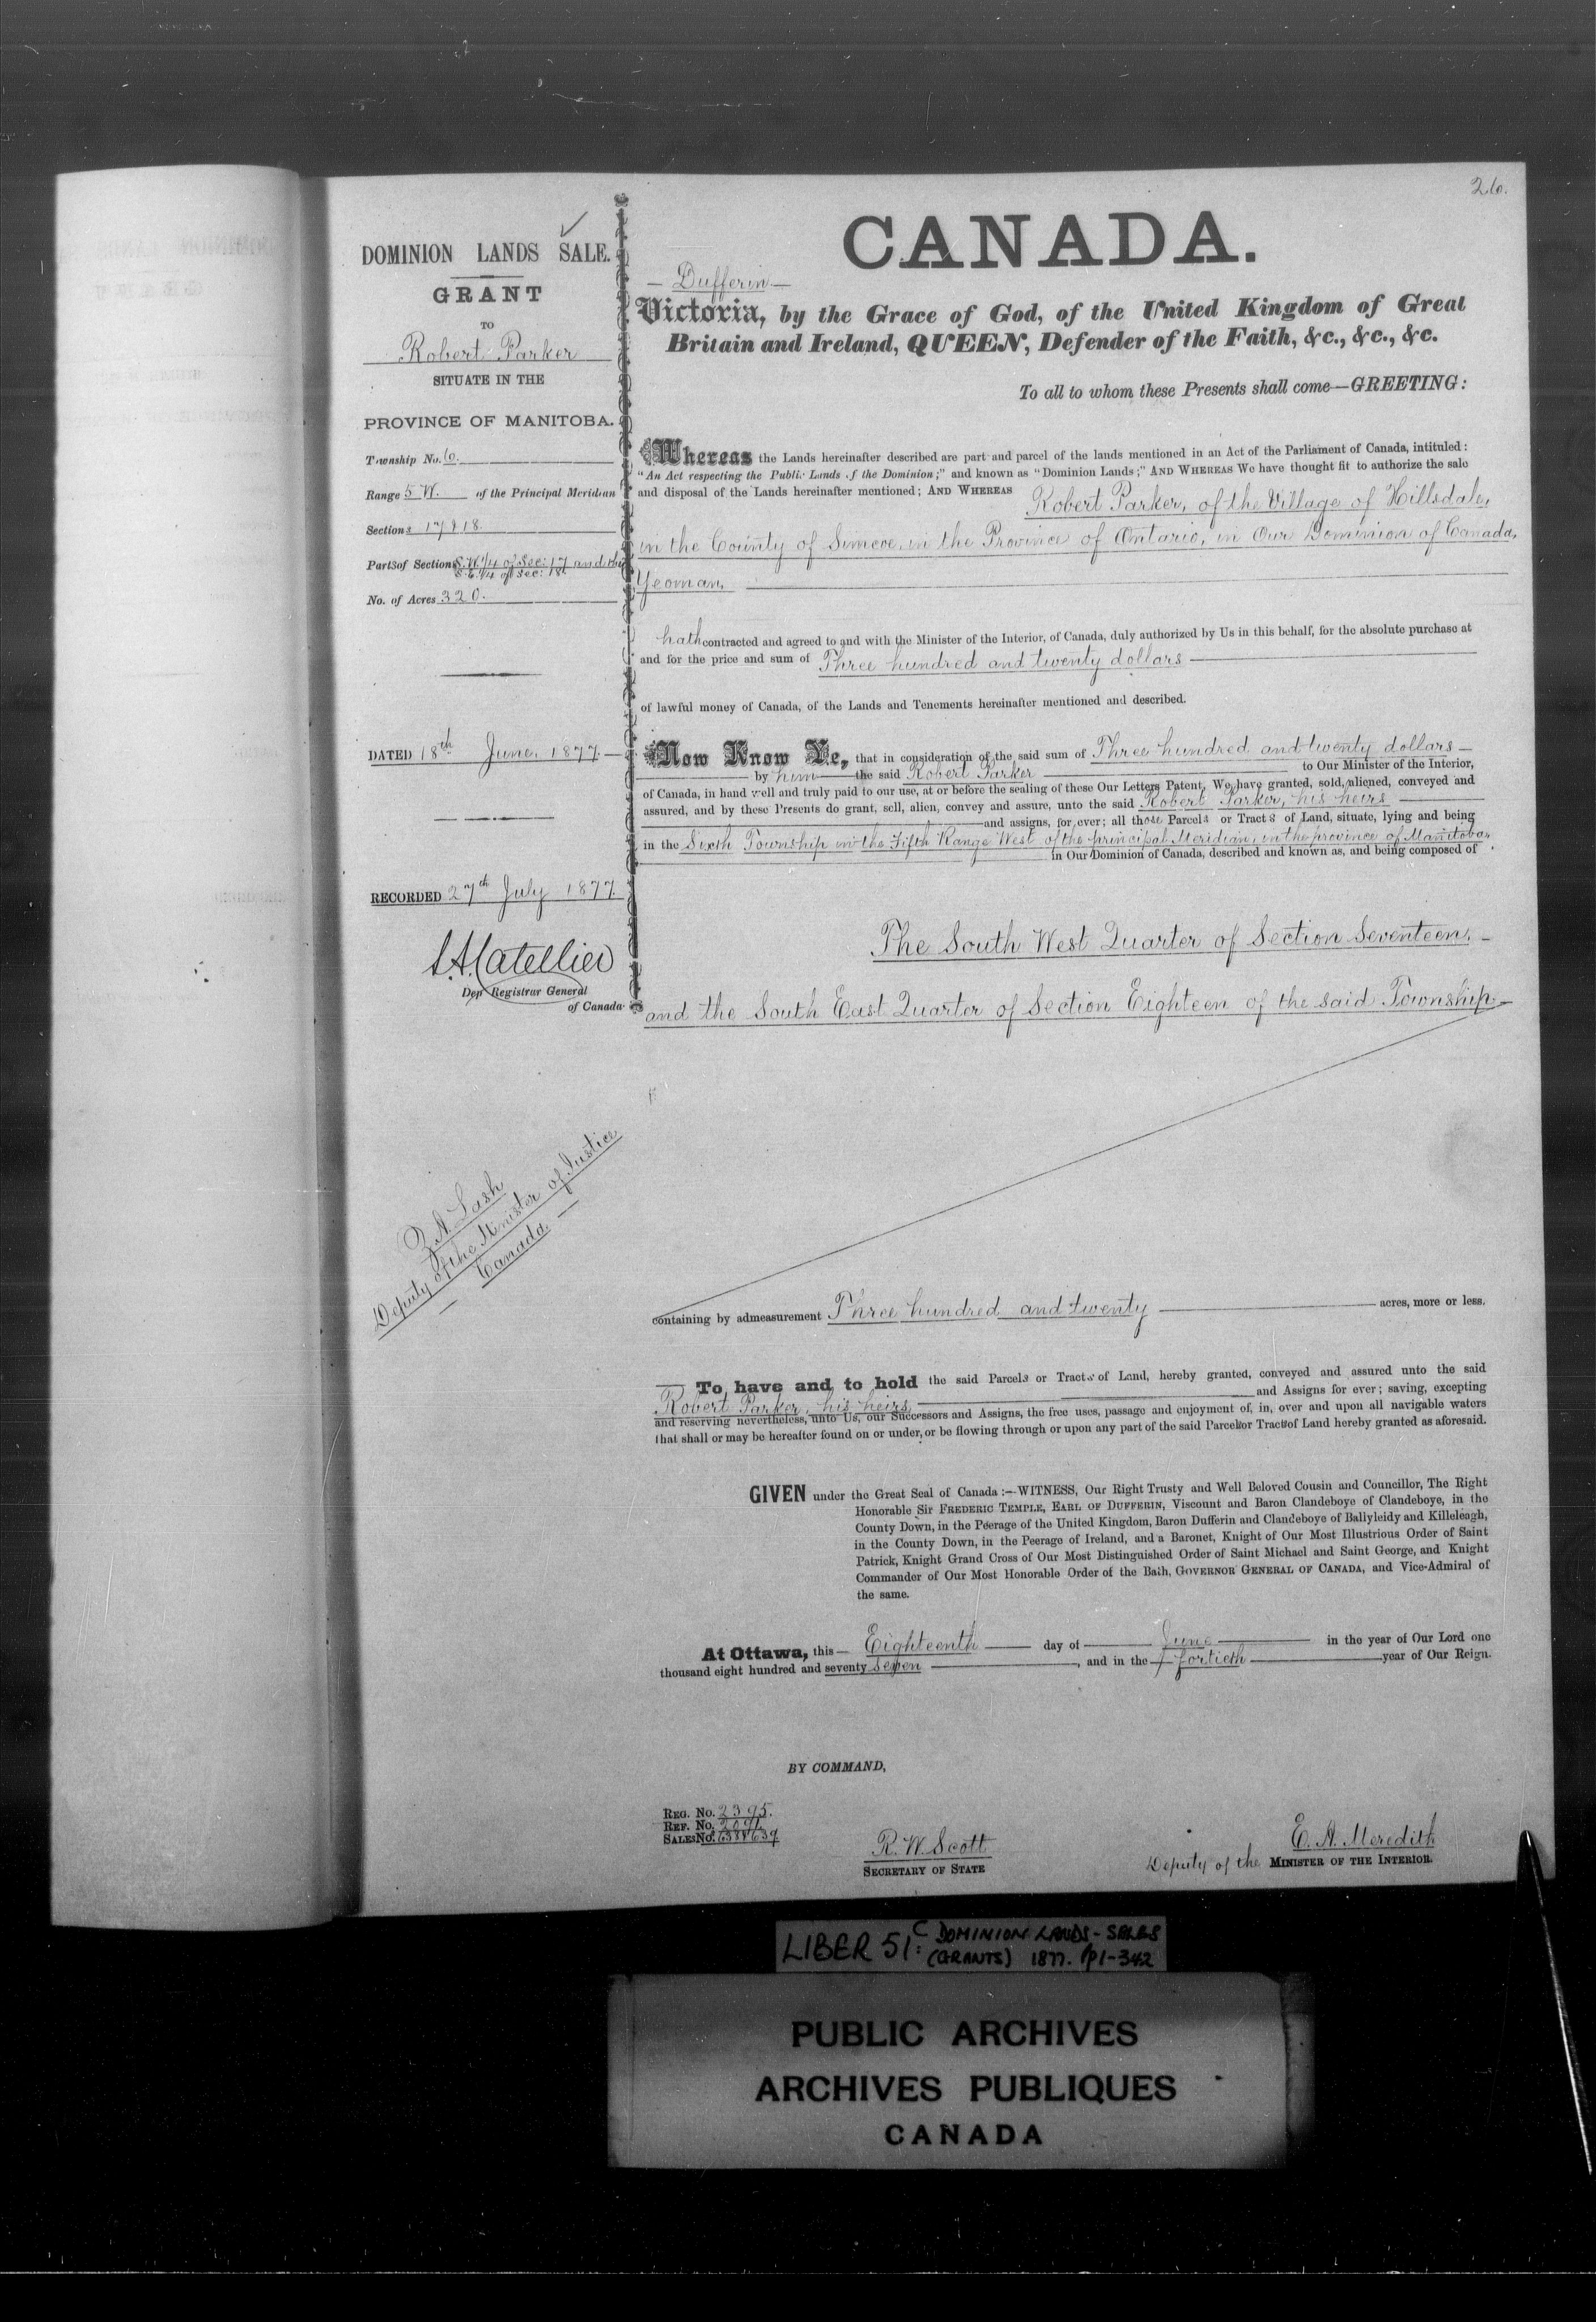 26.
DOMINION LANDS SALE.
GRANT
TO
Robert Parker
SITUATE IN THE
PROVINCE OF MANITOBA.
Township No. 6.
Range 5 W. of the Principal Meridian
Sections 17 & 18.
Parts of Sections S.W. 1/4 of Sec: 17 and the
S.E. 1/4 of Sec: 18.
No. of Acres 320.
DATED 18th June, 1877.
RECORDED 27th July 1877.
L.A. Catellier
Dep Registrar General
of Canada.
Z.A. Lash
Deputy of the Minister of Justice
Canada.
CANADA.
Dufferin
Victoria, by the Grace of God, of the United Kingdom of Great
Britain and Ireland, QUEEN, Defender of the Faith, &c., &c., &c.
To all to whom these Presents shall come—GREETING:
Whereas the Lands hereinafter described are part and parcel of the lands mentioned in an Act of the Parliament of Canada, intituled:
"An Act respecting the Public Lands of the Dominion;" and known as "Dominion Lands;" AND WHEREAS We have thought fit to authorize the sale
and disposal of the Lands hereinafter mentioned; AND WHEREAS Robert Parker, of the Village of Hillsdale,
in the County of Simcoe, in the Province of Ontario, in Our Dominion of Canada,
Yeoman,
hath contracted and agreed to and with the Minister of the Interior, of Canada, duly authorized by Us in this behalf, for the absolute purchase at
and for the price and sum of Three hundred and twenty dollars
of lawful money of Canada, of the Lands and Tenements hereinafter mentioned and described.
Now Know Ye, that in consideration of the said sum of Three hundred and twenty dollars
by him the said Robert Parker to Our Minister of the Interior,
of Canada, in hand well and truly paid to our use, at or before the sealing of these Our Letters Patent, We have granted, sold, aliened, conveyed and
assured, and by these Presents do grant, sell, alien, convey and assure, unto the said Robert Parker, his heirs
and assigns, for ever; all those Parcels or Tracts of Land, situate, lying and being
in the Sixth Township in the Fifth Range West of the principal Meridian, in the province of Manitoba,
in Our Dominion of Canada, described and known as, and being composed of
The South West Quarter of Section Seventeen,
and the South East Quarter of Section Eighteen of the said Township.
containing by admeasurement Three hundred and twenty acres, more or less.
To have and to hold the said Parcels or Tracts of Land, hereby granted, conveyed and assured unto the said
Robert Parker, his heirs and Assigns for ever; saving, excepting
and reserving nevertheless, unto Us, our Successors and Assigns, the free uses, passage and enjoyment of, in, over and upon all navigable waters
that shall or may be hereafter found on or under, or be flowing through or upon any part of the said Parcels or Tracts of Land hereby granted as aforesaid.
GIVEN under the Great Seal of Canada:—WITNESS, Our Right Trusty and Well Beloved Cousin and Councillor, The Right
Honorable Sir FREDERIC TEMPLE, EARL OF DUFFERIN, Viscount and Baron Clandeboye of Clandeboye, in the
County Down, in the Peerage of the United Kingdom, Baron Dufferin and Clandeboye of Ballyleidy and Killeleagh,
in the County Down, in the Peerage of Ireland, and a Baronet, Knight of Our Most Illustrious Order of Saint
Patrick, Knight Grand Cross of Our Most Distinguished Order of Saint Michael and Saint George, and Knight
Commander of Our Most Honorable Order of the Bath, GOVERNOR GENERAL OF CANADA, and Vice-Admiral of
the same.
At Ottawa, this Eighteenth day of June in the year of Our Lord one
thousand eight hundred and seventy seven, and in the fortieth year of Our Reign.
BY COMMAND,
REG. No. 2395.
REF. No.
SALES No.
R. W. Scott
SECRETARY OF STATE
E. A. Meredith
Deputy of the MINISTER OF THE INTERIOR.
LIBER 51C: DOMINION LANDS - SALES
(GRANTS) 1877. p1-342
PUBLIC ARCHIVES
ARCHIVES PUBLIQUES
CANADA